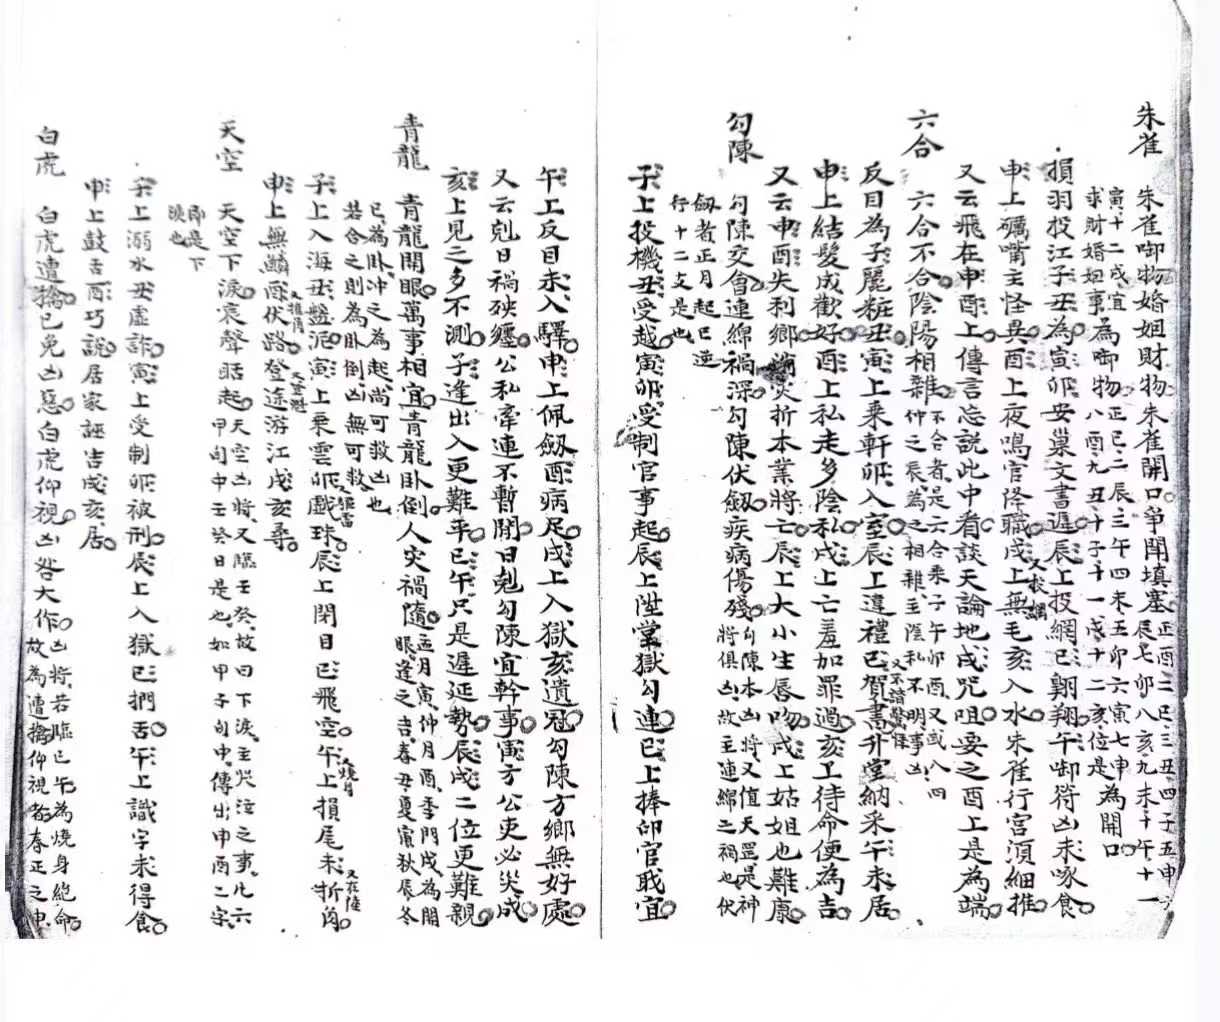 朱雀　朱雀啣物婚姻財物朱雀開口爭鬪填塞
正酉二巳三丑四子五申六
辰七卯八亥九未十午十一
寅十二戌宜為啣物正巳二辰三午四未五卯六寅七申為開口
求財婚姻事　八酉九丑十子十一戌十二亥位是
損羽投江子丑為寅卯安巢文書遲辰上投網巳翺翔午啣符凶未啄食
申上礪嘴主怪異酉上夜鳴官降職戌上無毛亥入水朱雀行宮須細推
又云飛在申酉上傳言忘説此中看談天論地成咒咀要之酉上是為端
六合　六合不合陰陽相雜
不合者是六合乘子午卯酉又或八四
仲之辰為之相雜主陰私不明事凶
反目為子麗粧丑寅上乘軒卯入室辰上違禮巳賀書升堂納采午未居
又不諧驚怪
申上結髮成歡好酉上私走多陰私戌上亡羞加罪過亥上待命便為吉
又云申酉失利鄉災折本業將亡辰上大小生唇吻戌上姑姐也難康
勾陳　勾陳交會連綿禍深勾陳伏劔疾病傷殘
勾陳本凶將又值天罡是神
將俱凶故主連綿之禍也伏
劔者正月起巳逆
行十二支是也
子上投機丑受越寅卯受制官事起辰上陞堂獄勾連巳上捧印官戢宜
午上反目未入驛申上佩劔酉病足戌上入獄亥遺冠勾陳方鄉無好處
又云剋日禍殃纏公私牽連不暫開日剋勾陳宜幹事寅方公吏必災成
亥上見之多不測子逢出入更難平巳午只是遲延勢辰戌二位更難親
青龍　青龍開眼萬事相宜青龍卧倒人灾禍隨
孟月寅仲月酉季門戌為開
眼逢之吉春丑夏寅秋辰冬
巳為卧冲之為起尚可救凶也
若合之則為卧倒凶無可救
子上入海丑盤泥寅上乘雲卯戲珠辰上閉目巳飛空午上損尾未折角
又驅雷
又燒身
又在陸
申上無鱗酉伏路登途游江戌亥尋
又摧角
又登魁
天空　天空下淚哀聲聒起
天空凶將又臨壬癸故曰下淚主哭泣之事凡六
甲旬中壬癸日是也如甲子旬中傳出申酉二字
即是下
淚也
子上溺水丑虛詐寅上受制卯被刑辰上入獄巳捫舌午上識字未得食
申上鼓舌酉巧説居家誣告戌亥居
白虎　白虎遭擒巳免凶惡白虎仰視凶咎大作
凶將若臨巳午為燒身絶命
故為遭擒仰視者春正之申